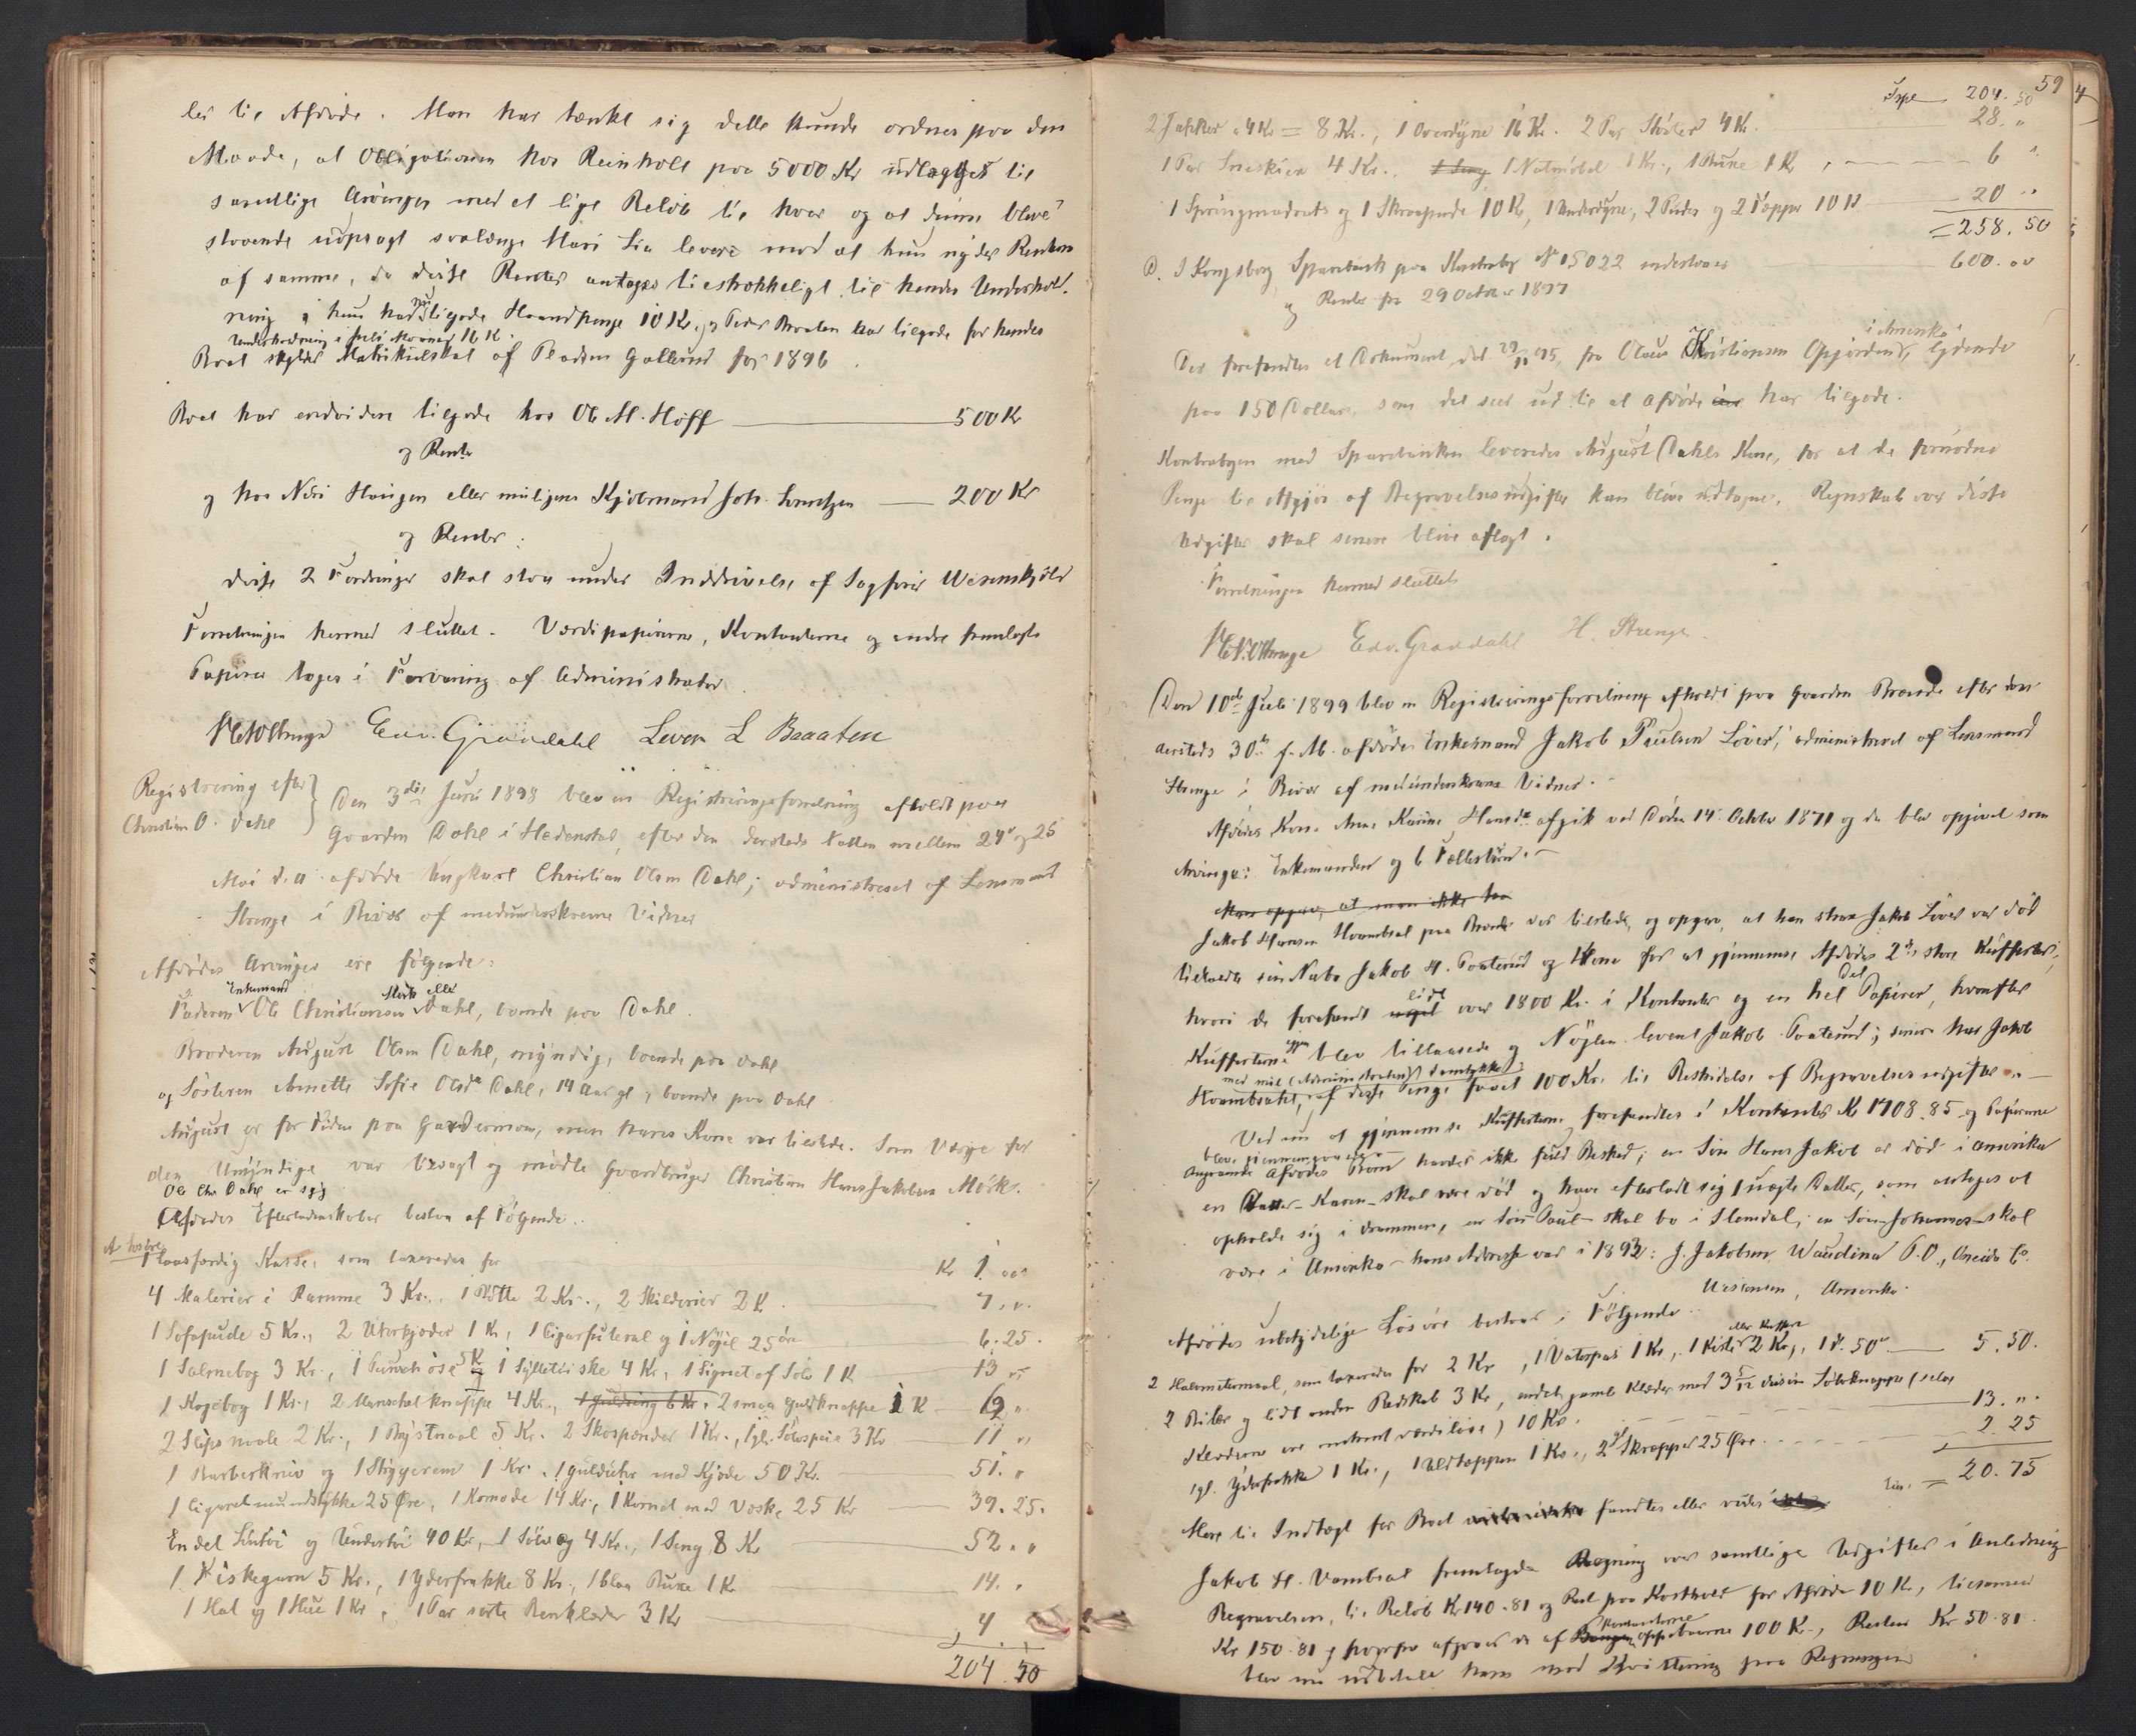 les til Afdøde. Man har tænkt sig dette kunde ordnes paa den
Maade, at Obligationen hos Reinholt paa 5000 Kr udlægges til
samtlige Arvinger med et lige Beløb til hver og at denne bliver
staaende uopsagt saalænge Mari Lia lever mod at hun nyder Renten
af samme, da disse Renter antages tilstrækkeligt til hendes Underhold-
ning hun har tilgode Haandpenge 10 Kr. og Peder Braaten har tilgode for hendes
Underholdning i Juli Maaned 16 K.
Boet skylder Matrikulskat af Pladsen Gallerud for 1896.
Boet har endvidere tilgode hos Ole M. Hoff — 500 Kr
og Rente
og hos Niri Haugen eller muligens Kjøbmand Joh. Lorentzen — 200 Kr
og Renter.
disse 2 Fordringer skal staa under Inddrivelse af Sagfører Wesenskjold
Forretningen hermed sluttet. Værdipapirerne, Kontanterne og andre fremlagte
Papirer tages i Forvaring af Administrator.
Edv. Grøndahl Lever L Braaten
Registrering efter
Christian O. Dahl
Den 3die Juni 1898 blev en Registreringsforretning afholdt paa
Gaarden Dahl i Hedenstad, efter den dersteds Natten mellem 24 og 25
Mai d. a. afdøde Ungkarl Christian Olsen Dahl; administreret af Lensmand
Strenge i Bivær af medunderskrevne Vidner
Afdødes Arvinger ere følgende:
Faderen Enkemand Ole Christiansen Mørk eller Dahl, boende paa Dahl.
Broderen August Olsen Dahl, myndig, boende paa Dahl
og Søsteren Annette Sofie Olsdr Dahl, 14 Aar gl., boende paa Dahl
August er for Tiden paa Gardermoen, men hans Kone var tilstede. Som Værge for
den Umyndige var tilsagt og mødte Gaardbruger Christian Hans Jakobsen Mørk.
Ole Chr. Dahl er syg
Afdødes Efterladenskaber bestaa af Følgende:
A Løsøre
1 laasfærdig Kasse, som taxeredes for Kr 1.00
4 Malerier i Ramme 3 Kr., 1 Potte 2 Kr., 2 Skilderier 2 K. — 7. "
1 Sofapude 5 Kr., 2 Uhrkjæder 1 K, 1 Cigarfuteral og 1 Nøgel 25 øre — 6.25.
1 Salmebog 3 Kr., 1 5 K 1 Sylteliske 4 Kr, 1 Signet af Sølv 1 K — 13 "
1 Kogebog 1 Kr., 2 Manschetknappe 4 Kr., 1 Guldring 6 Kr. 2 smaa guldknappe 1 K — 6 "
2 Slipsnaale 2 Kr., 1 Brystnaal 5 Kr. 2 Skospænder 1 Kr., 1 gl. Sølvspæie 3 Kr — 11 "
1 Barberkniv og 1 Strygerem 1 Kr., 1 Gulduhr med Kjæde 50 Kr. — 51. "
1 Cigaretmundstykke 25 Øre, 1 Komode 14 Kr, 1 Kornet med Væske 25 Kr — 39.25.
En del Lintøi og Undertøi 40 Kr, 1 4 Kr., 1 Seng 8 Kr — 52. "
1 Fiskegarn 5 Kr., 1 Yderfrakke 8 Kr., 1 blaa Buxe 1 K — 14. "
1 Hat og 1 Hue 1 Kr, 1 Par sorte Benklæder 3 Kr — 4
204.50
59
Trspt 204.50
2 Jakker a 4 Kr = 8 Kr., 1 Overdyne 16 Kr. 2 Par Støvler 4 Kr. 28. "
1 Par Sneskien 4 Kr., 1 Seng 1 Natmøbel 1 Kr., 1 Buxe 1 Kr, — 6 "
1 Springmadrats og 1 Skraapude 10 Kr, 1 Underdyne, 2 Puder og 2 Tepper 10 K — 20 "
= 258.50
B. I Kongsberg Sparebank paa Kontrabog No 15022 indestaaer 600.00
og Renter fra 29 October 1897
Der forefandtes et Dokument, dat 29/11 95, fra Olaus Kristiansen Opjordens, i Amerika lydende
paa 150 Dollars, som det seer ud til at Afdøde har tilgode.
Kontrabogen med Sparebanken leveredes August Dahls Kone, for at de fornødne
Penge til Afgjør af Begravelsesudgifter kan blive udtagne. Regnskab over disse
Udgifter skal senere blive aflagt.
Forretningen hermed sluttet
Edv. Grøndahl H. Strenge
Den 10de Juli 1899 blev en Registreringsforretning afholdt paa Gaarden Brænde efter den
dersteds 30te f. M. afdøde Enkemand Jakob Paulsen Løver, administreret af Lensmand
Strenge i Bivær af medunderskrevne Vidner.
Afdødes Kone Anne Karine Hansdr afgik ved Døden 14 Oktbr 1871 og da blev opgivet som
Arvinger: Enkemanden og 6 Fællesbørn.
Man opgav, at man ikke har
Jakob Hansen Vrambsal paa Brænde var tilstede, og opgav, at han strax Jakob Løver var død
tilkaldte sin Nabo Jakob H. Poaterud og Kone for at gjennemse Afdødes 2de store Kufferter,
hvori de forefandt lidt over 1800 Kr. i Kontanter og en hel Del Papirer, hvorefter
Kufferterne igjen blev tillaasede og Nøglen levert Jakob Poaterud; senere har Jakob
med mit (Administratorens) Samtykke
Vrambsahl, af disse Penge faaet 100 Kr. til Bestridelse af Begravelsesudgifter.
Ved nu at gjennemse Kufferterne forefandtes i Kontanter Kr 1708.85 og Papirerne
blev gjennemgaaede.
Angaaende Afdødes Børn havdes ikke fuld Besked; en Søn Hans Jakob er død i Amerika
en Datter Karen skal være død og have efterladt sig 1 uægte Datter, som antages at
opholde sig i Drammen, en Søn Paul skal bo i Slemdal, en Søn Johannes skal
være i Amerika hans Adresse var i 1892: J. Jakobsen Waudina P.O., Oneida Co.
Wisconsin, Amerika.
Afdødes ubetydelige Løsøre bestaar i Følgende:
2 Halvmetermaal, som taxeredes for 2 Kr, 1 Vaterpas 1 Kr, 1 Kiste eller Kuffert 2 Kr, 1 d. 50 — 5.50.
2 Biler og lidt anden Redskab 3 Kr, endel gamle Klæder med 3 5/12 dusin Sølvknapper (selve
Klæderne ere omtrent værdiløse) 10 Kr. — 13. "
1 gl. Yderfrakke 1 Kr., 1 Uldteppe 1 Kr., 2 Skræpper 25 Øre. — 2.25
= 20.75
Mere til Indtægt for Boet fandtes eller vides
Jakob H. Vrambsal fremlagde Regning over samtlige Udgifter i Anledning
Begravelsen, til Beløb Kr 140.81 og Rest paa Kosthold for Afdøde 10 Kr, tilsammen
Kr 150.81, hvorfra afgaar de af Kontanterne oppebaarne 100 K., Resten Kr 50.81.
blev nu udbetalt ham mod Kvittering paa Regningen